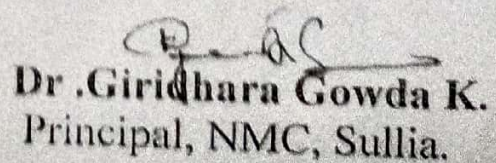 Dr .Giridhara Gowda K.
Principal, NMC, Sullia.